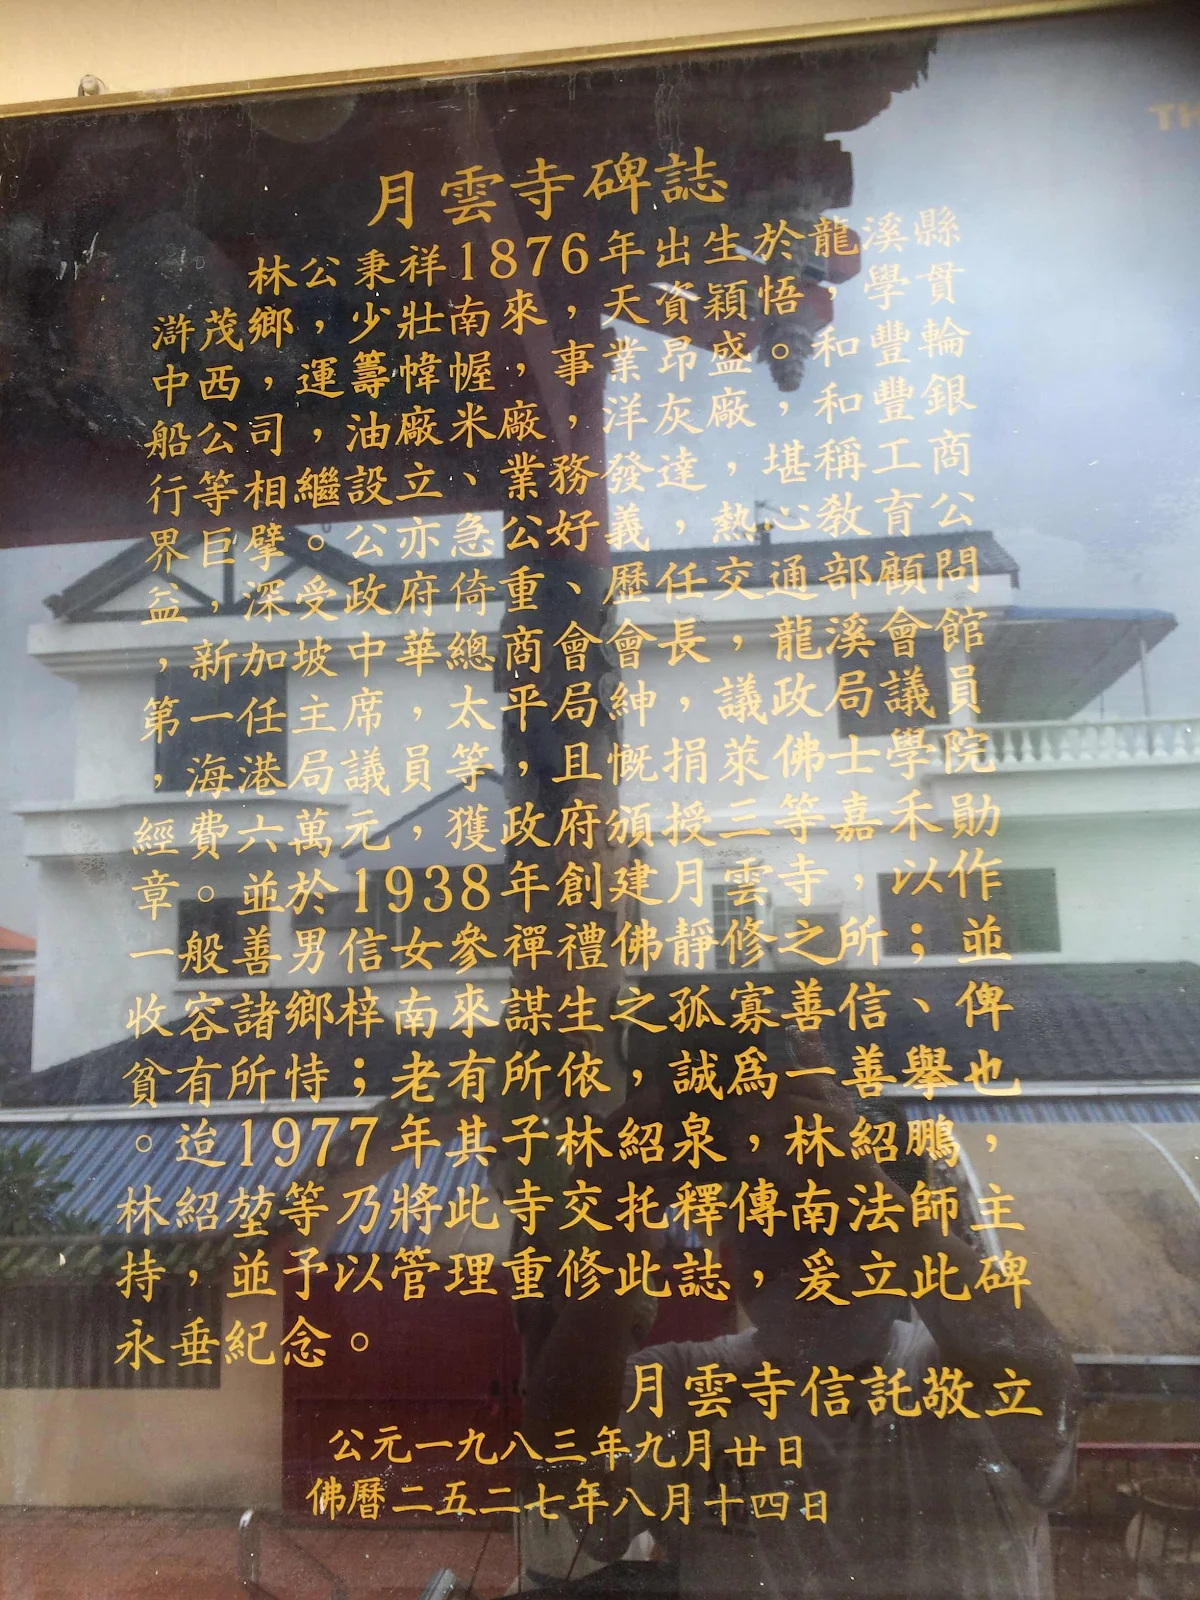 月雲寺碑誌
林公秉祥1876年出生於龍溪縣
滸茂鄉，少壯南來，天資穎悟，學貫
中西，運籌幃幄，事業昂盛。和豐輪
船公司，油廠米廠，洋灰廠，和豐銀
行等相繼設立、業務發達，堪稱工商
界巨擘。公亦急公好義，熱心教育公
益，深受政府倚重、歷任交通部顧問
，新加坡中華總商會會長，龍溪會館
第一任主席，太平局紳，議政局議員
，海港局議員等，且慨捐萊佛士學院
經費六萬元，獲政府頒授三等嘉禾勛
章。並於1938年創建月雲寺，以作
一般善男信女參禪禮佛靜修之所；並
收容諸鄉梓南來謀生之孤寡善信、俾
貧有所恃；老有所依，誠爲一善舉也
。迨1977年其子林紹泉，林紹鵬，
林紹堃等乃將此寺交托釋傳南法師主
持，並予以管理重修此誌，爰立此碑
永垂紀念。
月雲寺信託敬立
公元一九八三年九月廿日
佛曆二五二七年八月十四日
TH